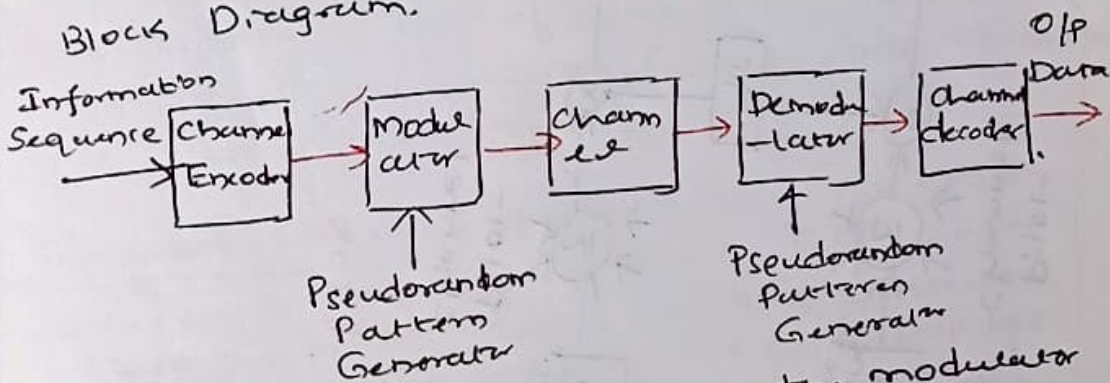 Block Diagram.
Information
Sequence
Channel
Encoder
Modul
ator
Chann
el
Demodu
-lator
Channel
decoder
O/P
Data
Pseudorandom
Pattern
Generator
Pseudorandom
Patteren
Generator
modulator